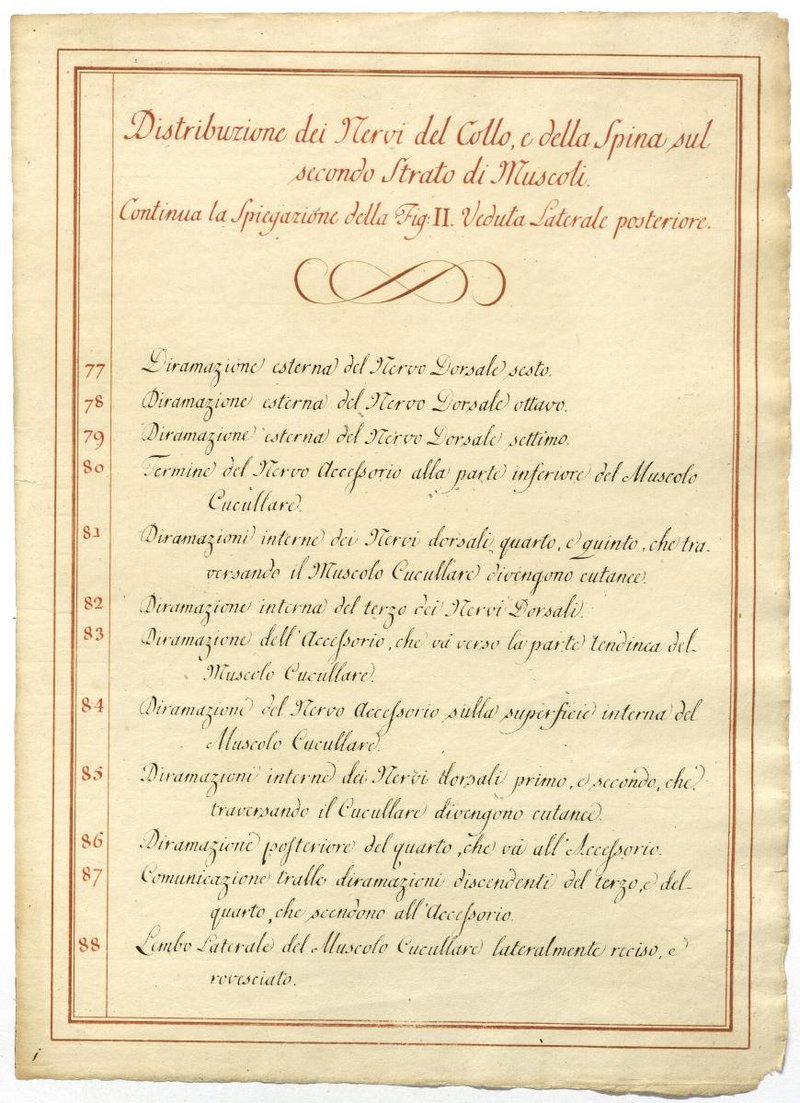 Distribuzione dei Nervi del Collo, e della Spina sul
secondo Strato di Muscoli.
Continua la Spiegazione della Fig: II. Veduta Laterale posteriore.
77 Diramazione esterna del Nervo Dorsale sesto.
78 Diramazione esterna del Nervo Dorsale ottavo.
79 Diramazione esterna del Nervo Dorsale settimo.
80 Termine del Nervo Accessorio alla parte inferiore del Muscolo
Cucullare.
81 Diramazioni interne dei Nervi dorsali quarto, e quinto, che tra-
versando il Muscolo Cucullare divengono cutanee.
82 Diramazione interna del terzo dei Nervi Dorsali.
83 Diramazione dell'Accessorio, che và verso la parte tendinea del
Muscolo Cucullare.
84 Diramazione del Nervo Accessorio sulla superficie interna del
Muscolo Cucullare.
85 Diramazioni interne dei Nervi dorsali primo, e secondo, che
traversando il Cucullare divengono cutanee.
86 Diramazione posteriore del quarto, che và all'Accessorio.
87 Comunicazione tralle diramazioni discendenti del terzo, e del
quarto, che scendono all'Accessorio.
88 Lembo Laterale del Muscolo Cucullare lateralmente reciso, e
rovesciato.
i